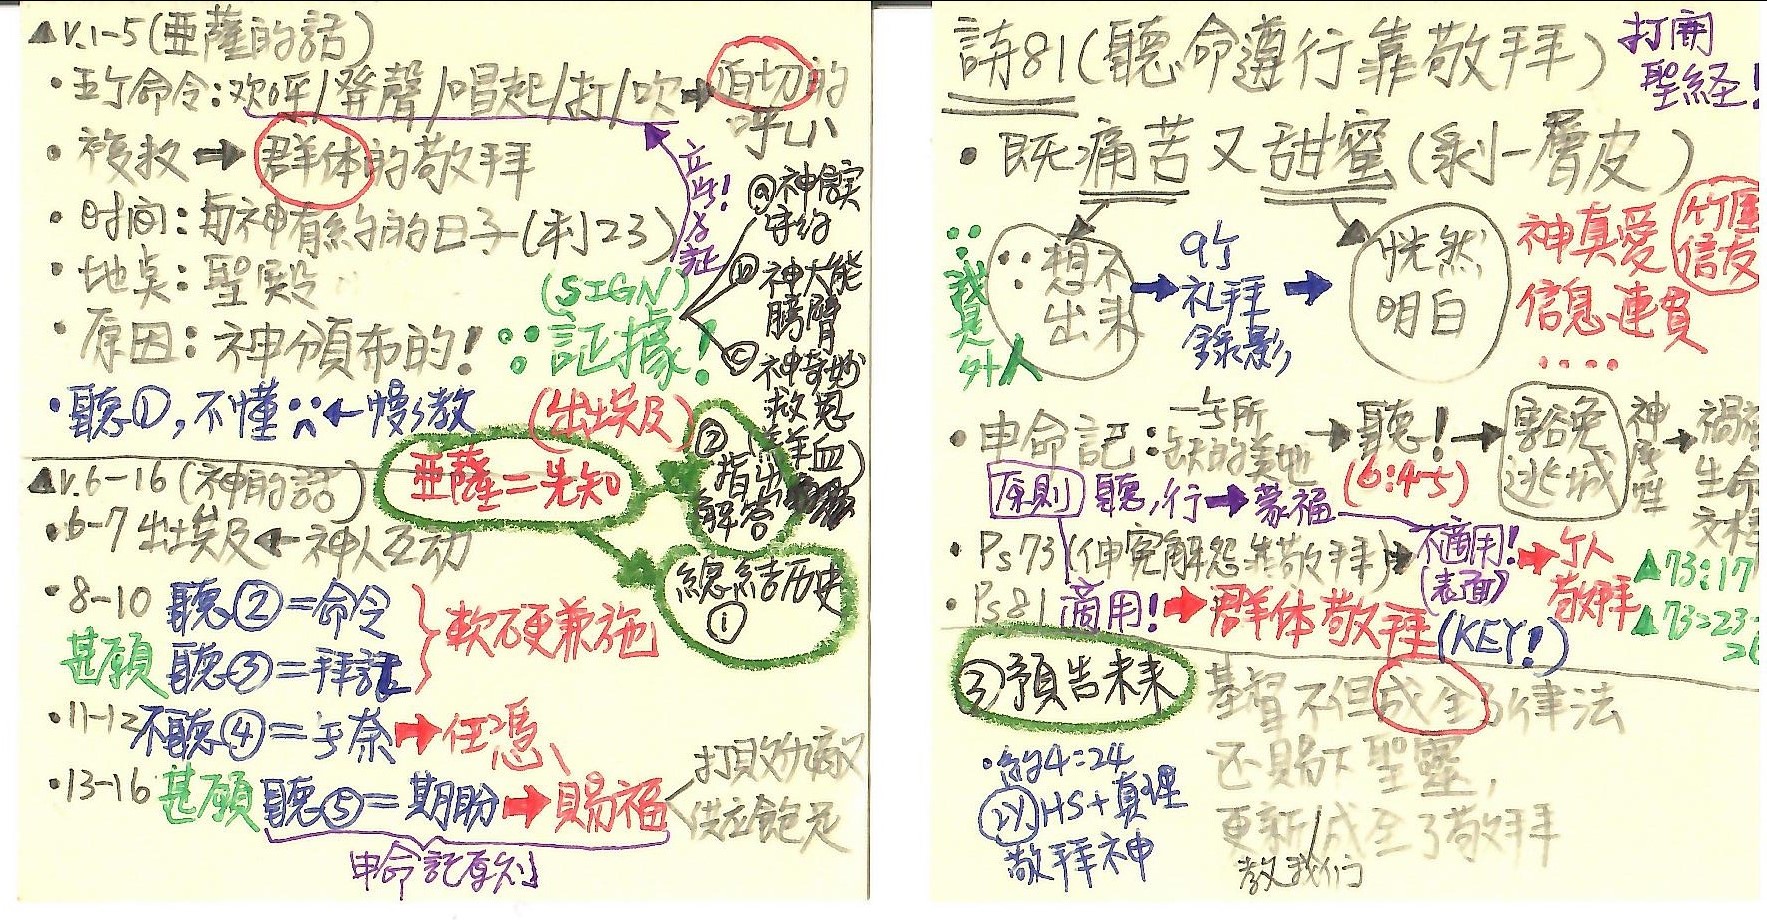 ▲v.1-5(亞薩的話)
•5个命令:欢呼/發聲/唱起/打/吹➡迫切的
呼心
•複数➡群体的敬拜
•时间:与神有約的日子(利23)
•地点:聖殿
•原因:神頒布的!
(SIGN)
∵証據!
立此為証
ⓐ神信実
守约
ⓑ神大能
膀臂
ⓒ神奇妙
救恩
(羔羊血)
•聽①,不懂∵←慘教
(出埃及)
亞薩=先知
②
指出
解答
總結历史
①
▲v.6-16(神的話)
•6-7出埃及←神人互动
•8-10聽②=命令
甚願聽③=拜託
}軟硬兼施
•11-12不聽④=无奈➡任憑
•13-16甚願聽⑤=期盼➡賜福
打敗仇敵
供应飽足
申命記原则
詩81(聽命遵行靠敬拜)
打開
聖経!
•既痛苦又甜蜜(剝一層皮)
∵想不
出来
➡9个
礼拜
錄影
➡恍然
明白
神真愛
信息連貫
••••
信友
外人
•申命記:一无所
缺的美地
➡聽!➡豁免
逃城
(6:4-5)
原則 聽,行➡蒙福
•Ps73(伸寃解怨靠敬拜)➡不適用!
(表面)
➡个人
敬拜
▲73:17
▲73:23-
•Ps81適用!➡群体敬拜(KEY!)
③預告未来
基督不但成全了律法
还賜下聖靈,
更新/成全了敬拜
教我们
•約4:24
以HS+真理
敬拜神